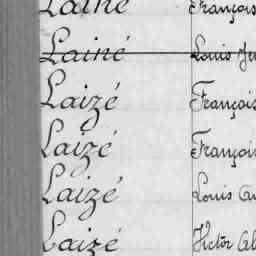 Lainé François
Lainé Louis
Laizé François
Laizé François
Laizé Louis
Laizé Victor